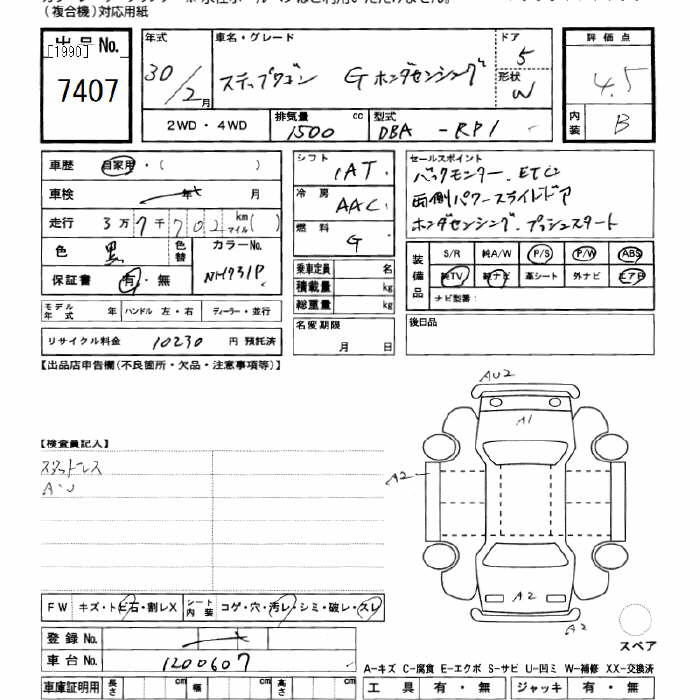 (複合機)対応用紙
出品No.
[1990]
7407
年式
30/2月
車名・グレード
ステップワゴン Gホンダセンシング
ドア
5
形状
W
評価点
4.5
内装
B
2WD・4WD
排気量
1500 cc
型式
DBA-RP1
車歴 自家用・( )
車検 年 月
走行 3万7千702km マイル( )
色 黒 色替
カラーNo.
NH731P
保証書 有・無
モデル年式 年 ハンドル 左・右 ディーラー・並行
リサイクル料金 10230円 預託済
シフト
IAT
冷房
AAC
燃料
G
乗車定員 名
積載量 kg
総重量 kg
名変期限
月 日
セールスポイント
バックモニター.ETC
両側パワースライドドア
ホンダセンシング.プッシュスタート
装備品
S/R 純A/W P/S P/W ABS
純TV 純ナビ 革シート 外ナビ エアB
ナビ型番:
後日品
【出品店申告欄(不良箇所・欠品・注意事項等)】
【検査員記入】
スタットレス
A・U
AU2
A1
A2
A2
A2
スペア
FW キズ・トビ石・割レX シート内装 コゲ・穴・汚レ・シミ・破レ・スレ
登録No.
車台No. 1200607
車庫証明用 長さ cm 幅 cm 高さ cm
A-キズ C-腐食 E-エクボ S-サビ U-凹ミ W-補修 XX-交換済
工具 有・無 ジャッキ 有・無